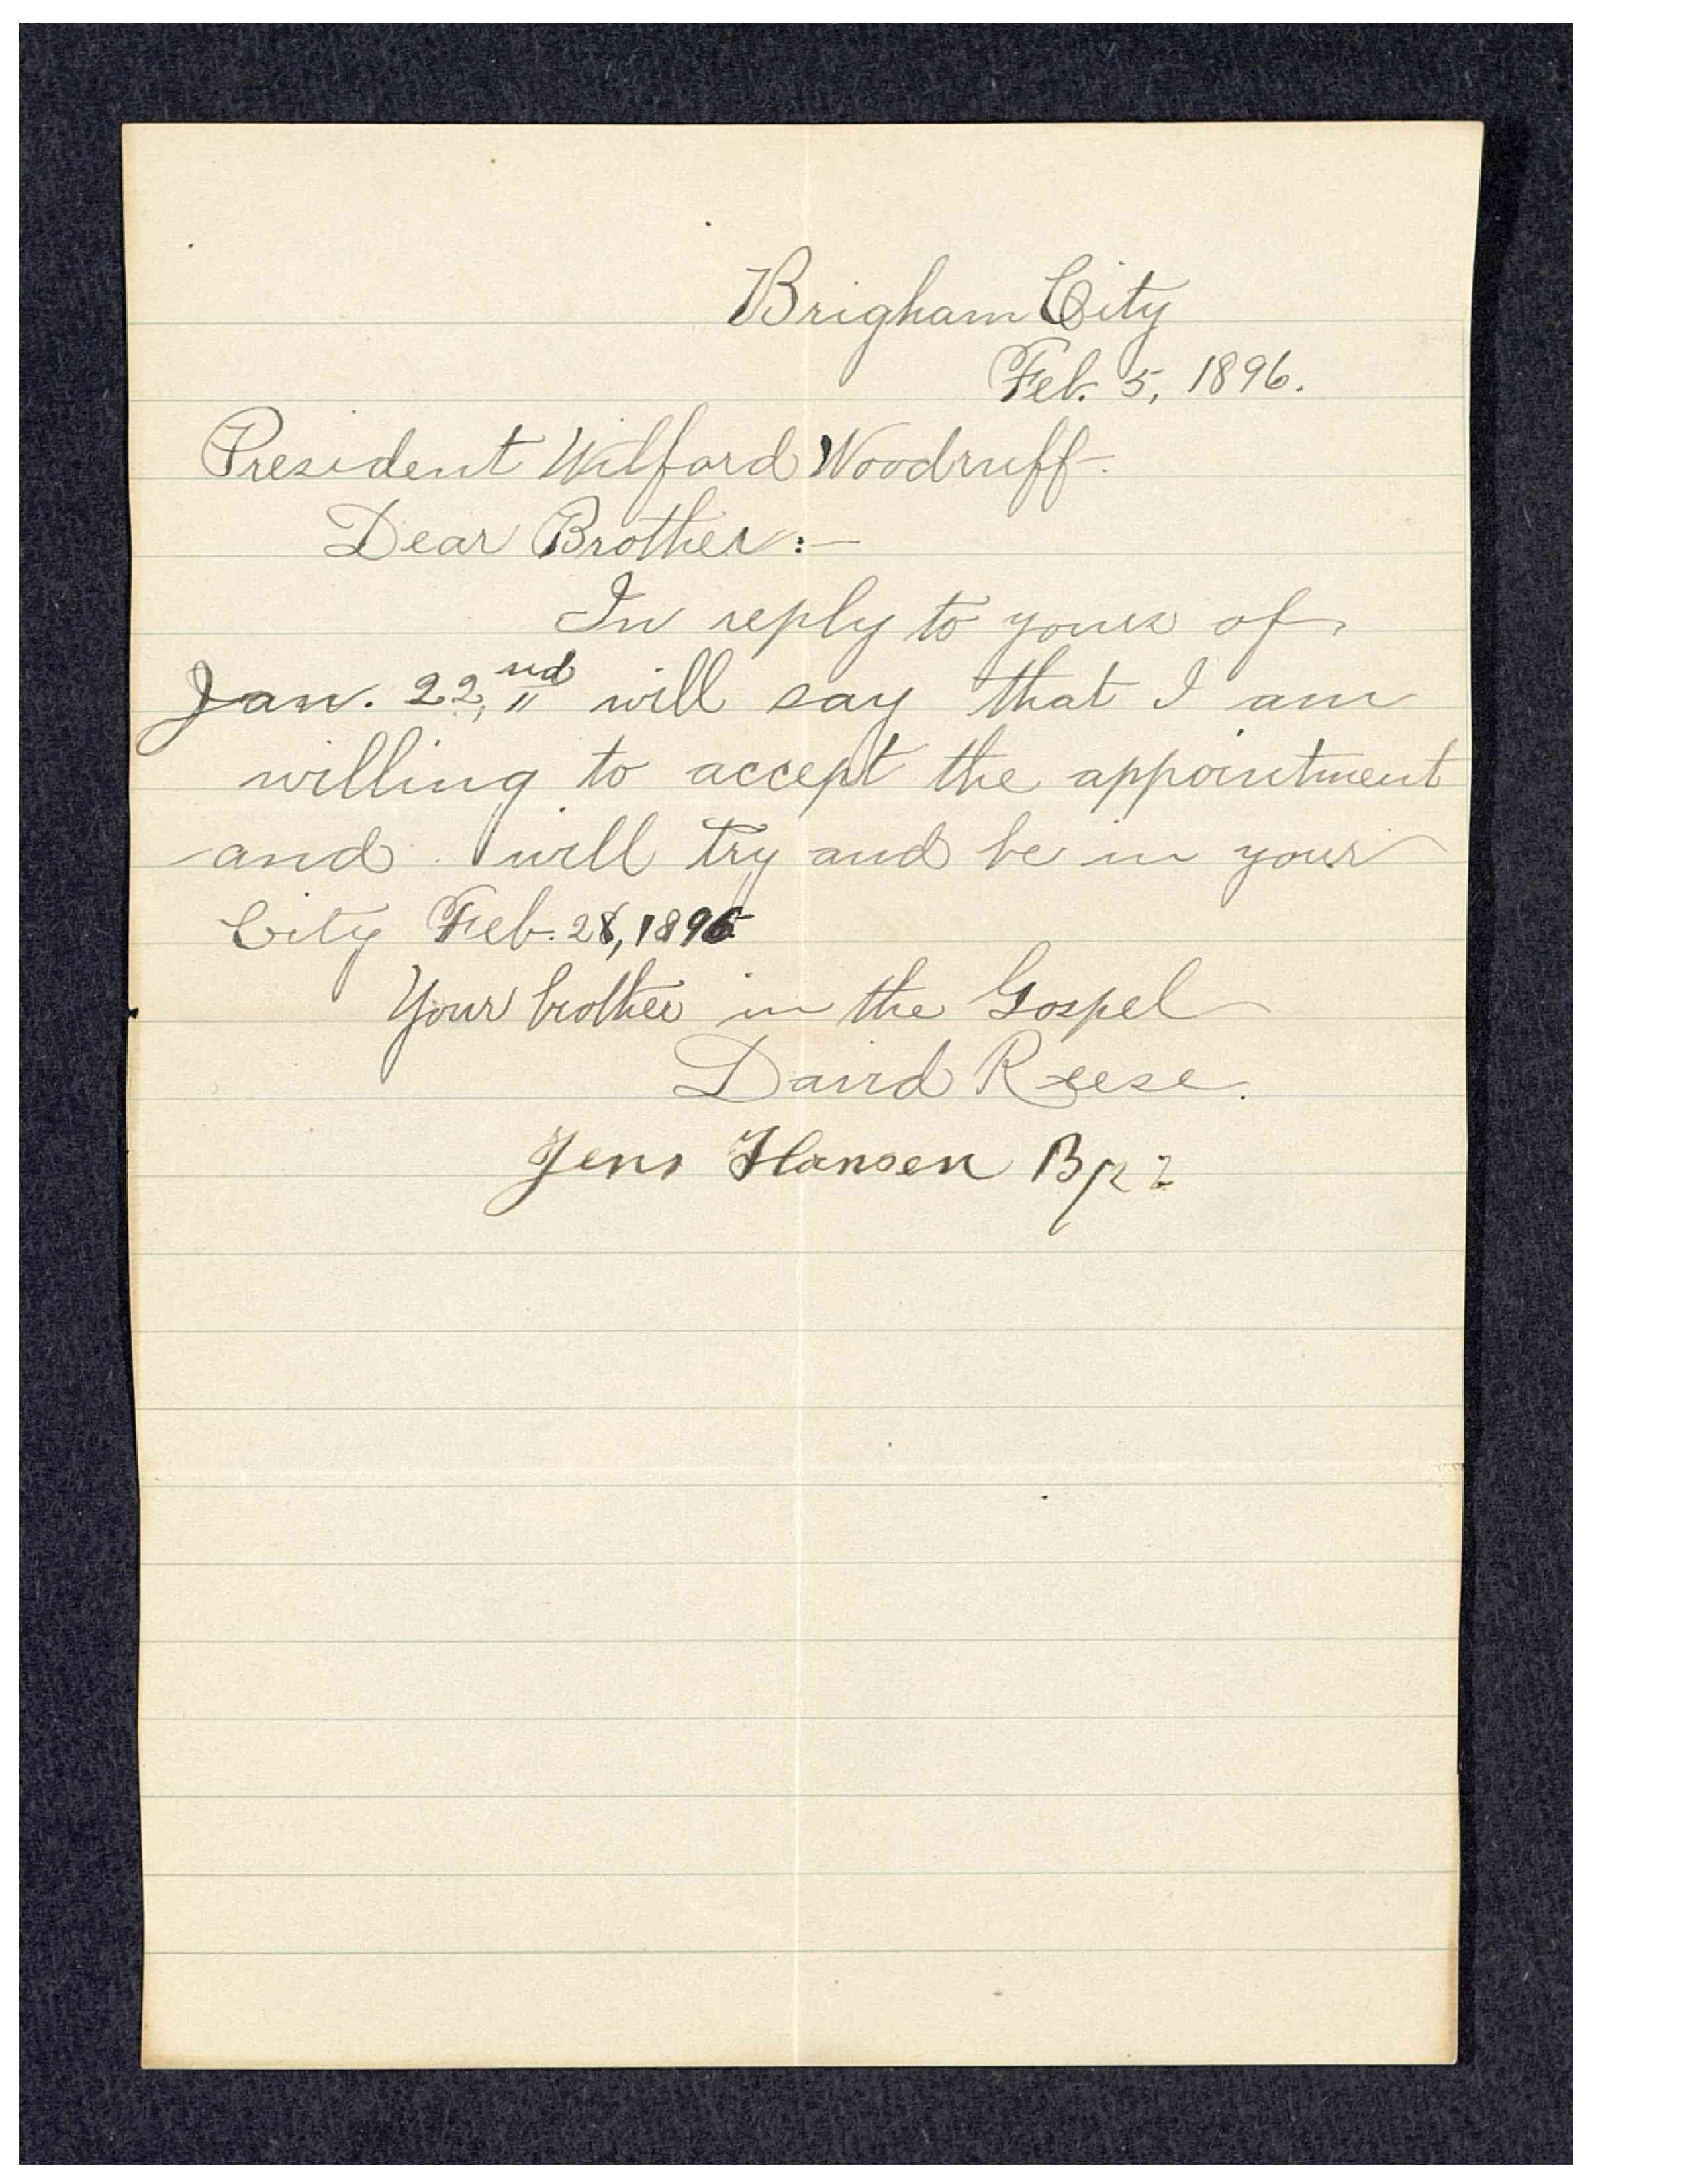 Brigham City
Feb. 5, 1896.
President Wilford Woodruff.
Dear Brother:—
In reply to yours of
Jan. 22,nd will say that I am
willing to accept the appointment
and will try and be in your
City Feb. 28, 1896
Your brother in the Gospel
David Reese.
Jens Hansen Bp